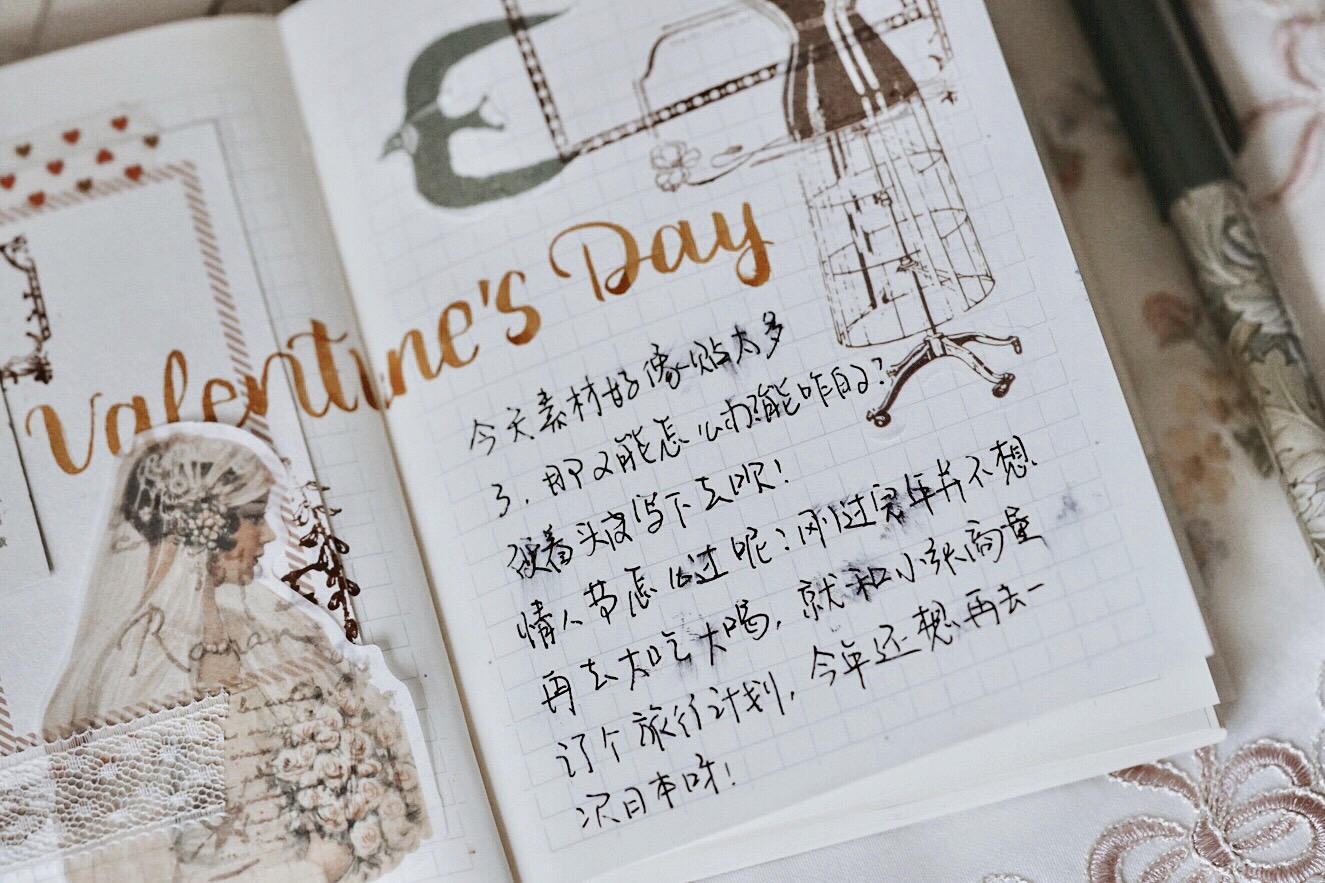 Valentine's Day
今天素材好像贴太多
了，那又能怎么办能咋的？
硬着头皮写下去呗！
情人节怎么过呢？刚过完年并不想
再去大吃大喝，就和小张商量
订个旅行计划，今年还想再去一
次日本呀！